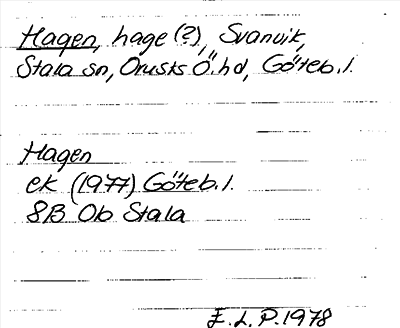 Hagen, hage (?), Svanvik,
Stala sn, Orusts Ö. hd, Göteb. l.
Hagen
ek (1977) Göteb. l.
8B 0b Stala
E. L. P. 1978